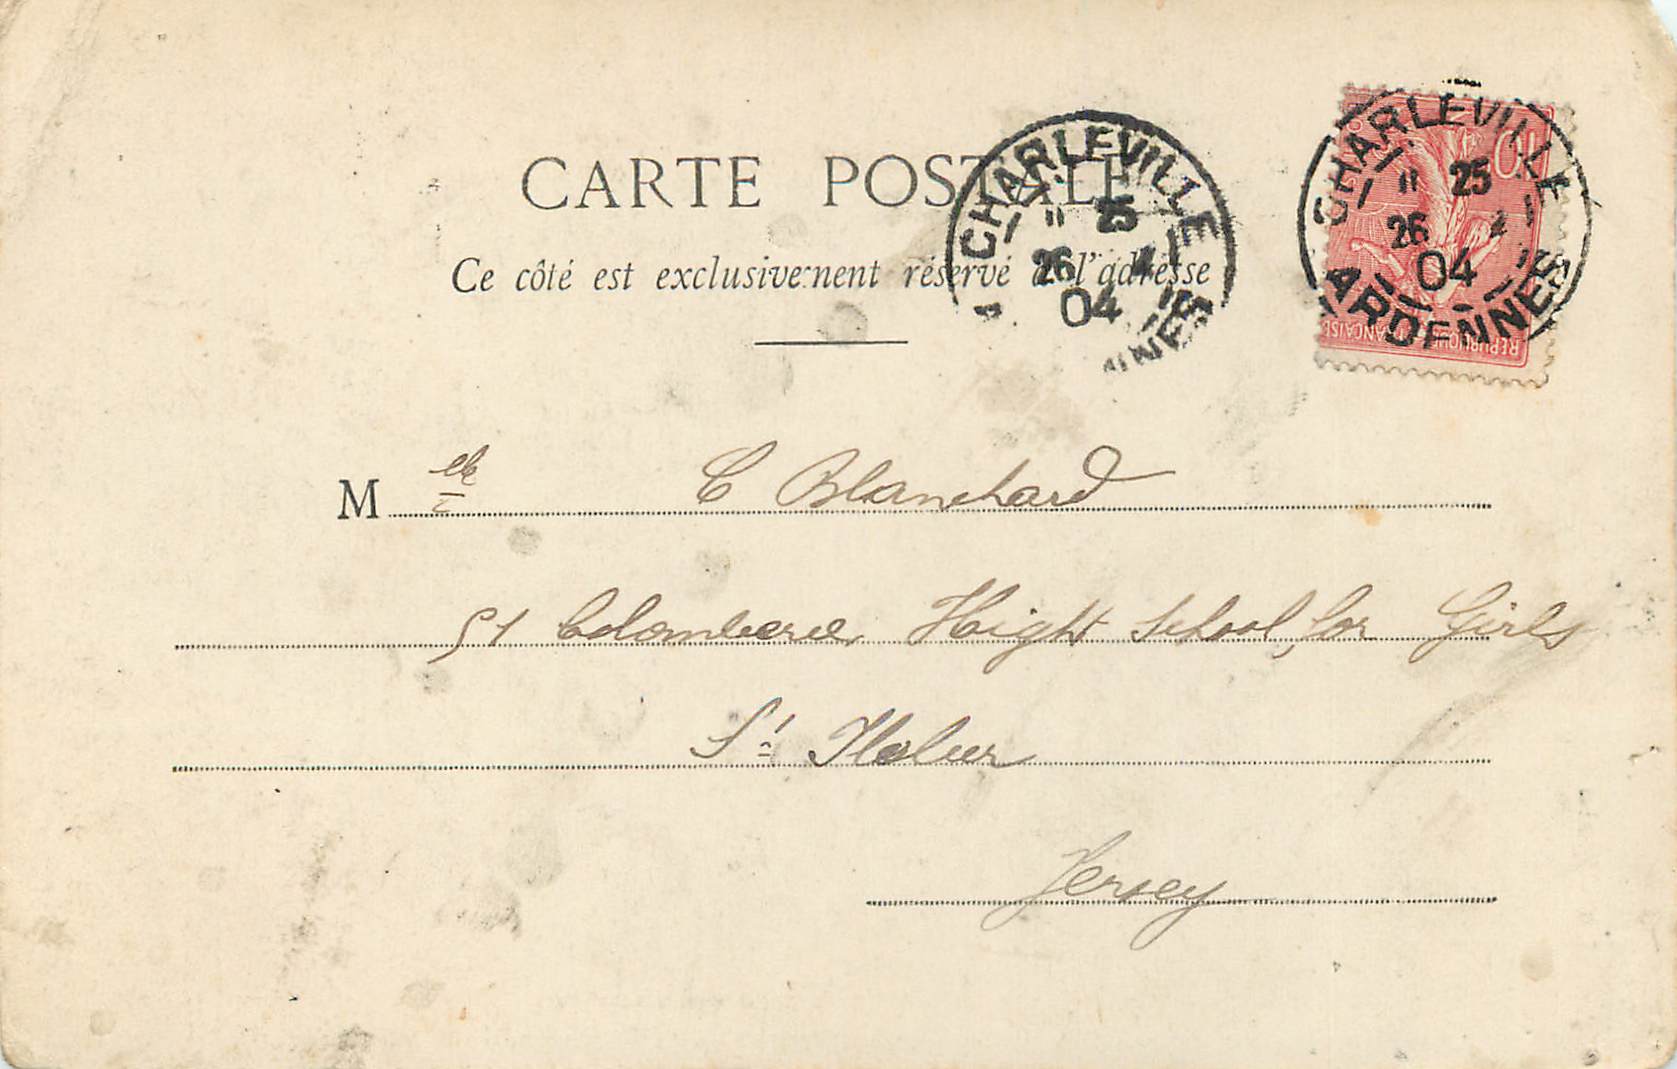 CARTE POSTALE
Ce côté est exclusivement réservé à l'adresse
CHARLEVILLE
11 25
26 4
04
NNES
CHARLEVILLE
11 25
26 4
04
ARDENNES
10
RÉPUBLIQUE FRANÇAISE
M elle C Blanchard
51 Colomberie, High School, for Girls
St Helier
Jersey